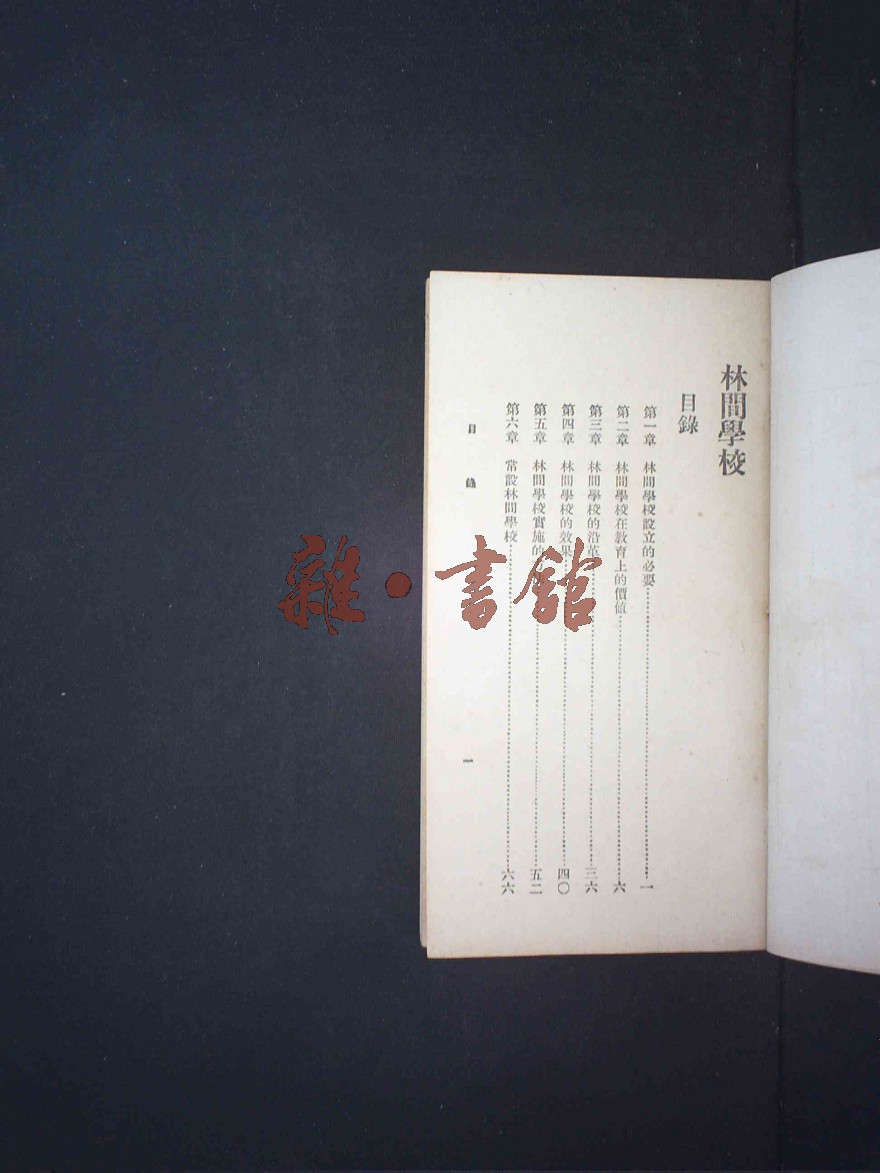 林間學校
目錄
第一章 林間學校設立的必要……一
第二章 林間學校在教育上的價値……六
第三章 林間學校的沿革……三六
第四章 林間學校的效果……四〇
第五章 林間學校實施的……五二
第六章 常設林間學校……六六
目錄
一
雜·書館